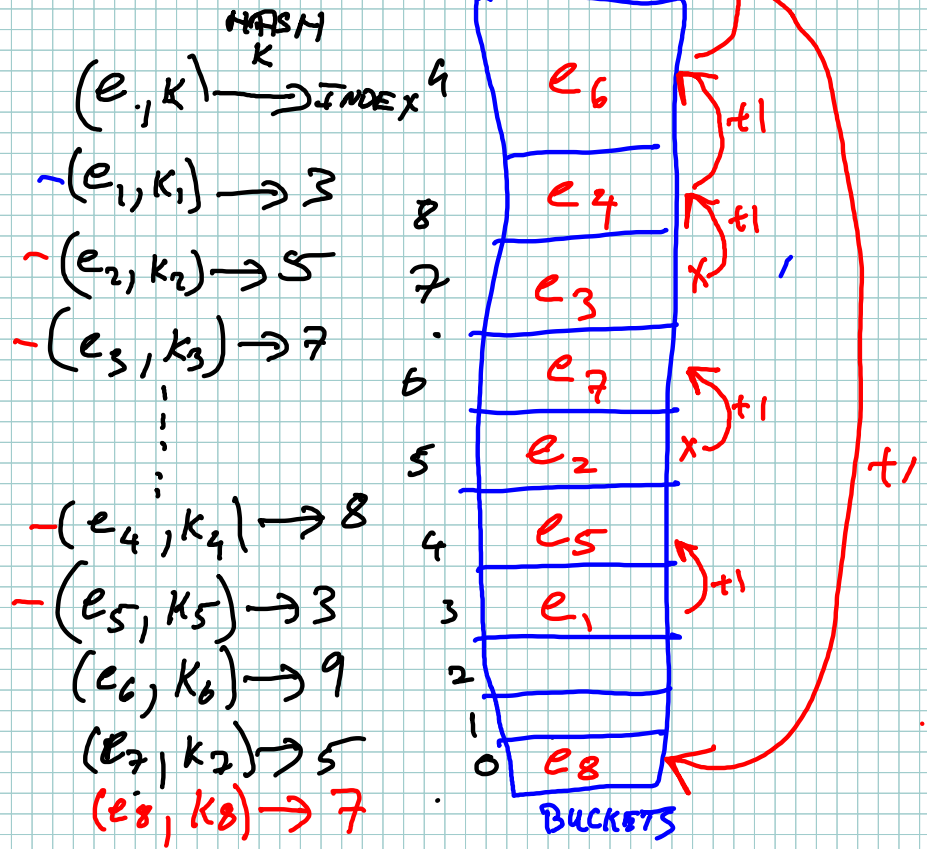 HASH
K
(e., K) → INDEX
(e1, K1) → 3
(e2, K2) → 5
(e3, K3) → 7
(e4, K4) → 8
(e5, K5) → 3
(e6, K6) → 9
(e7, K7) → 5
(e8, K8) → 7
9 e6
8 e4
7 e3
6 e7
5 e2
4 e5
3 e1
2
1
0 e8
BUCKETS
+1
+1
x
+1
x
+1
+1